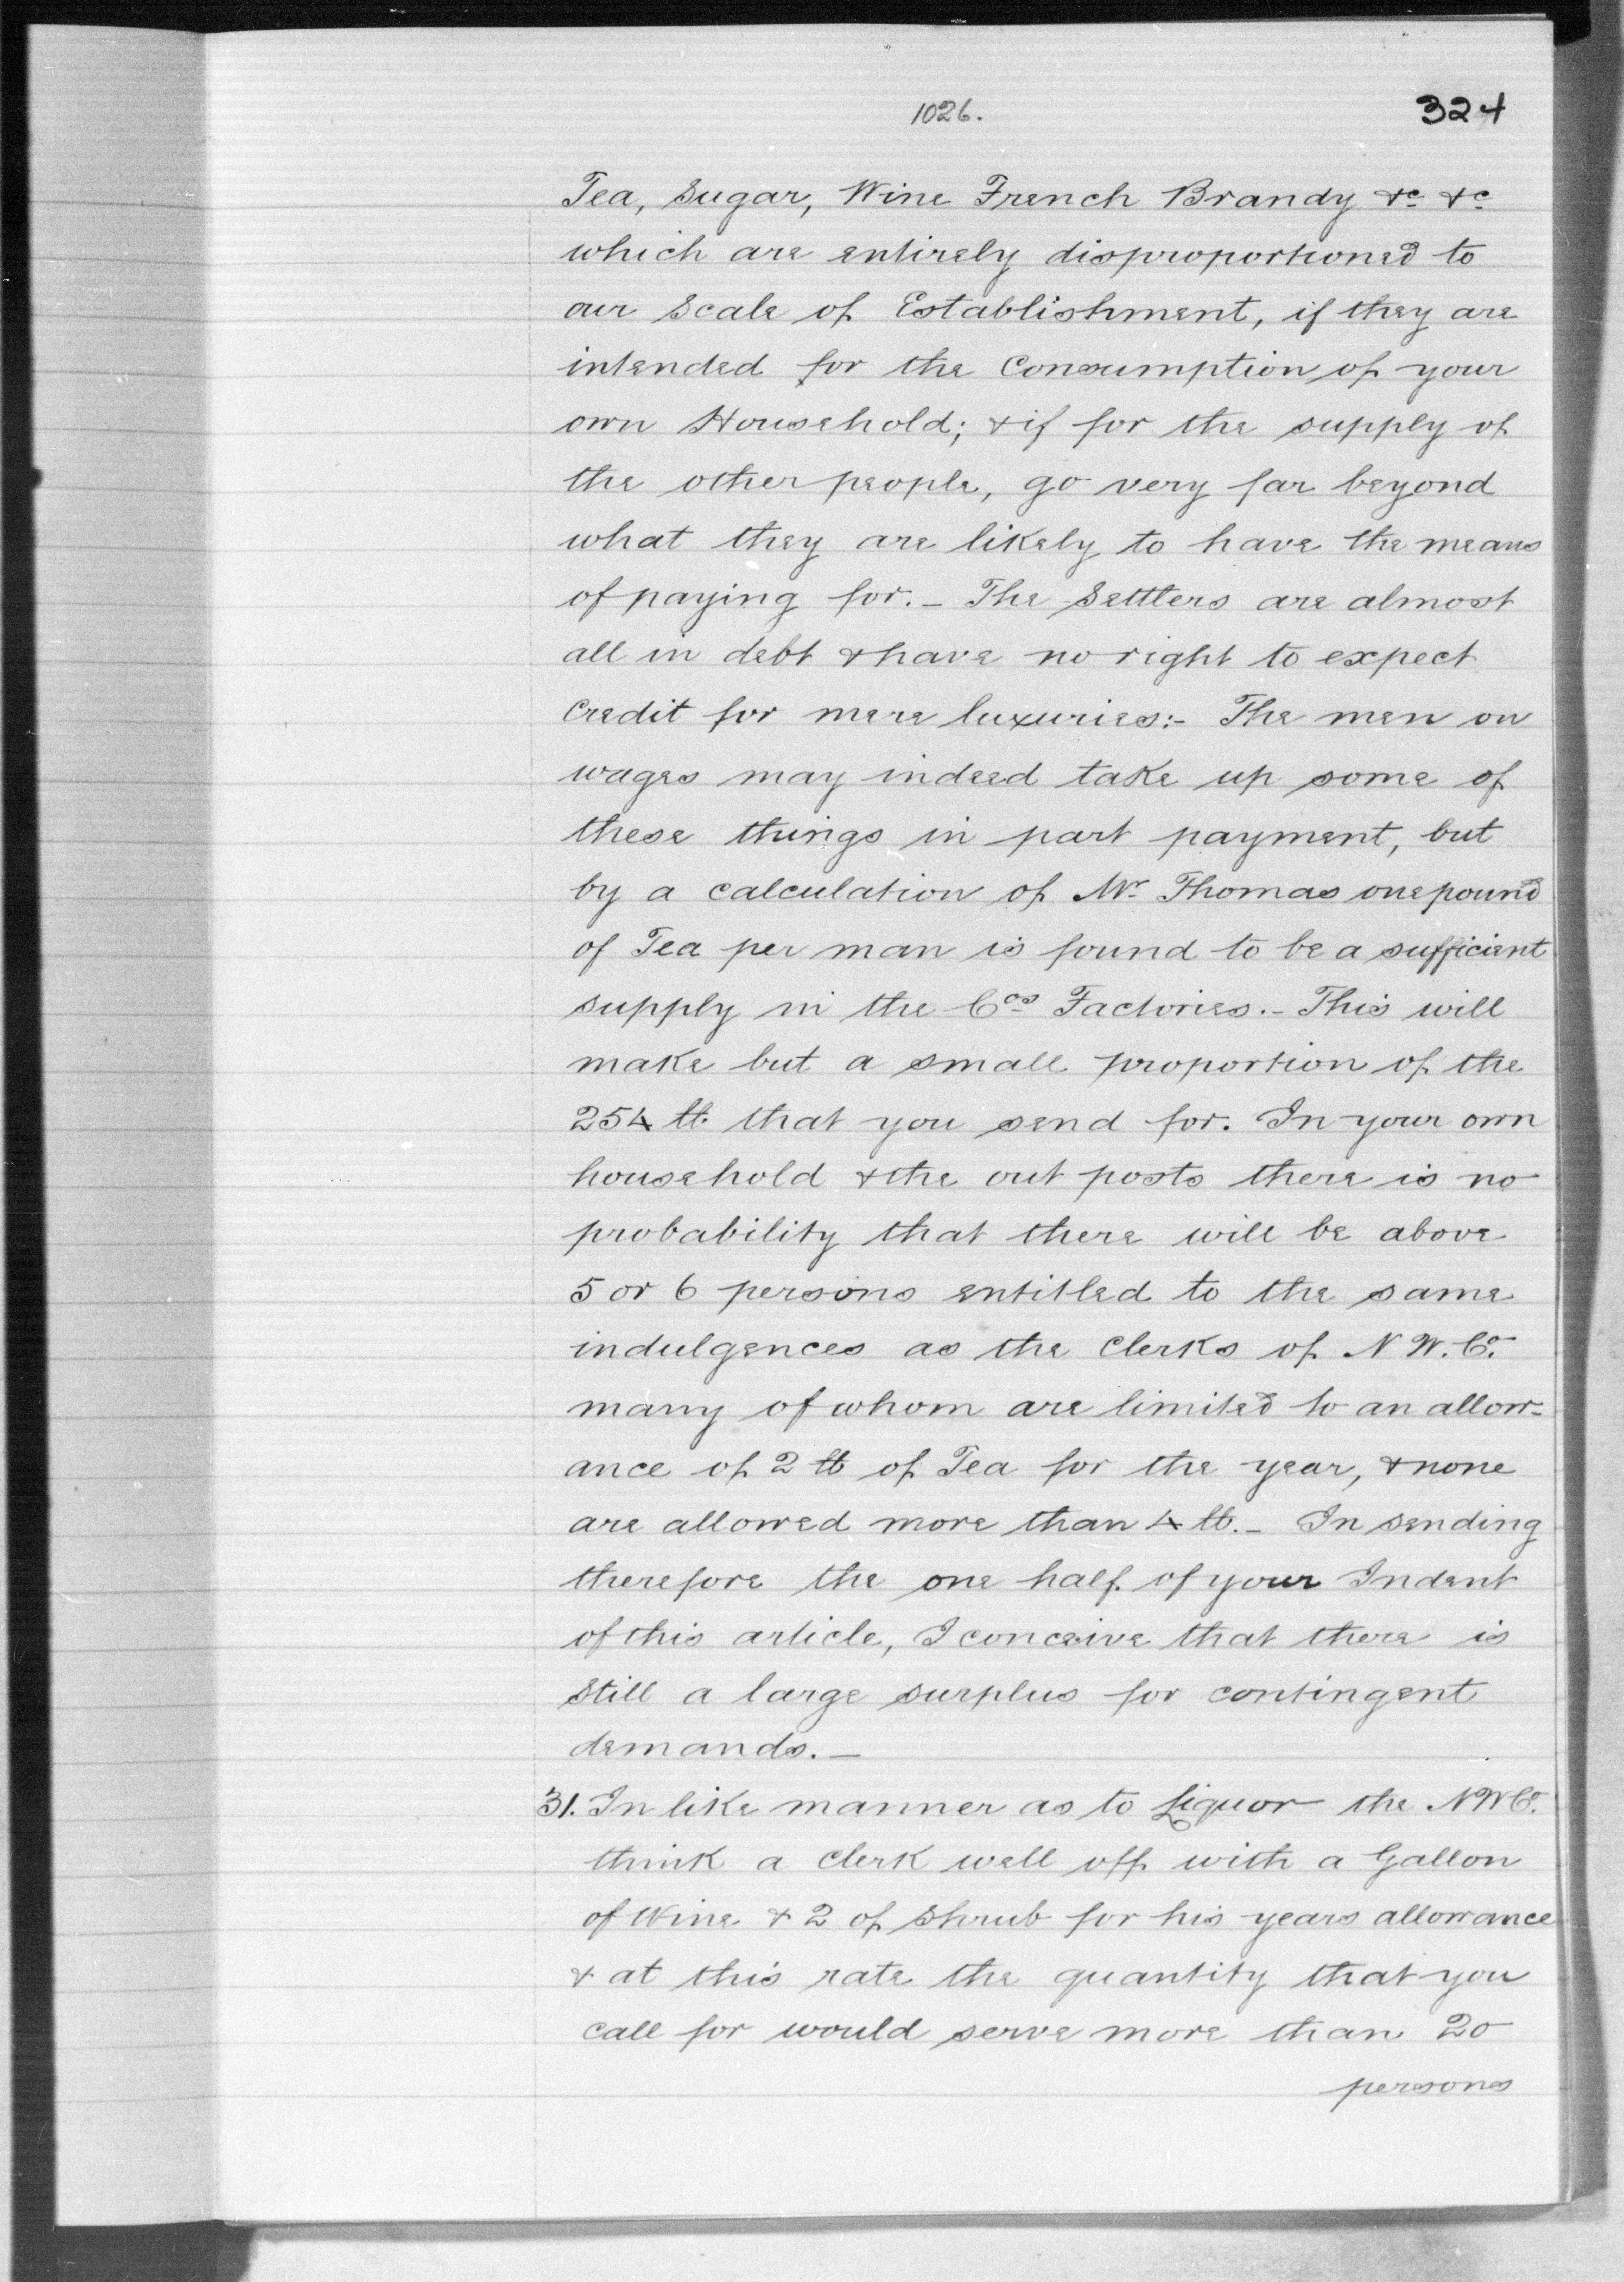 1026.
324
Tea, Sugar, Wine French Brandy &c &c
which are entirely disproportioned to
our Scale of Establishment, if they are
intended for the Consumption of your
own Household; & if for the supply of
the other people, go very far beyond
what they are likely to have the means
of paying for. - The Settlers are almost
all in debt & have no right to expect
Credit for mere luxuries:- The men on
wages may indeed take up some of
these things in part payment, but
by a calculation of Mr. Thomas one pound
of Tea per man is found to be a sufficient
supply in the Cos Factories. - This will
make but a small proportion of the
254 lb that you send for. In your own
household & the out posts there is no
probability that there will be above
5 or 6 persons entitled to the same
indulgences as the Clerks of N W. Co.
many of whom are limited to an allow-
ance of 2 lb of Tea for the year, & none
are allowed more than 4 lb. - In sending
therefore the one half of your Indent
of this article, I conceive that there is
Still a large surplus for contingent
demands. -
31. In like manner as to Liquor the N W Co.
think a Clerk well off with a Gallon
of Wine & 2 of Shrub for his years allowance
& at this rate the quantity that you
call for would serve more than 20
persons